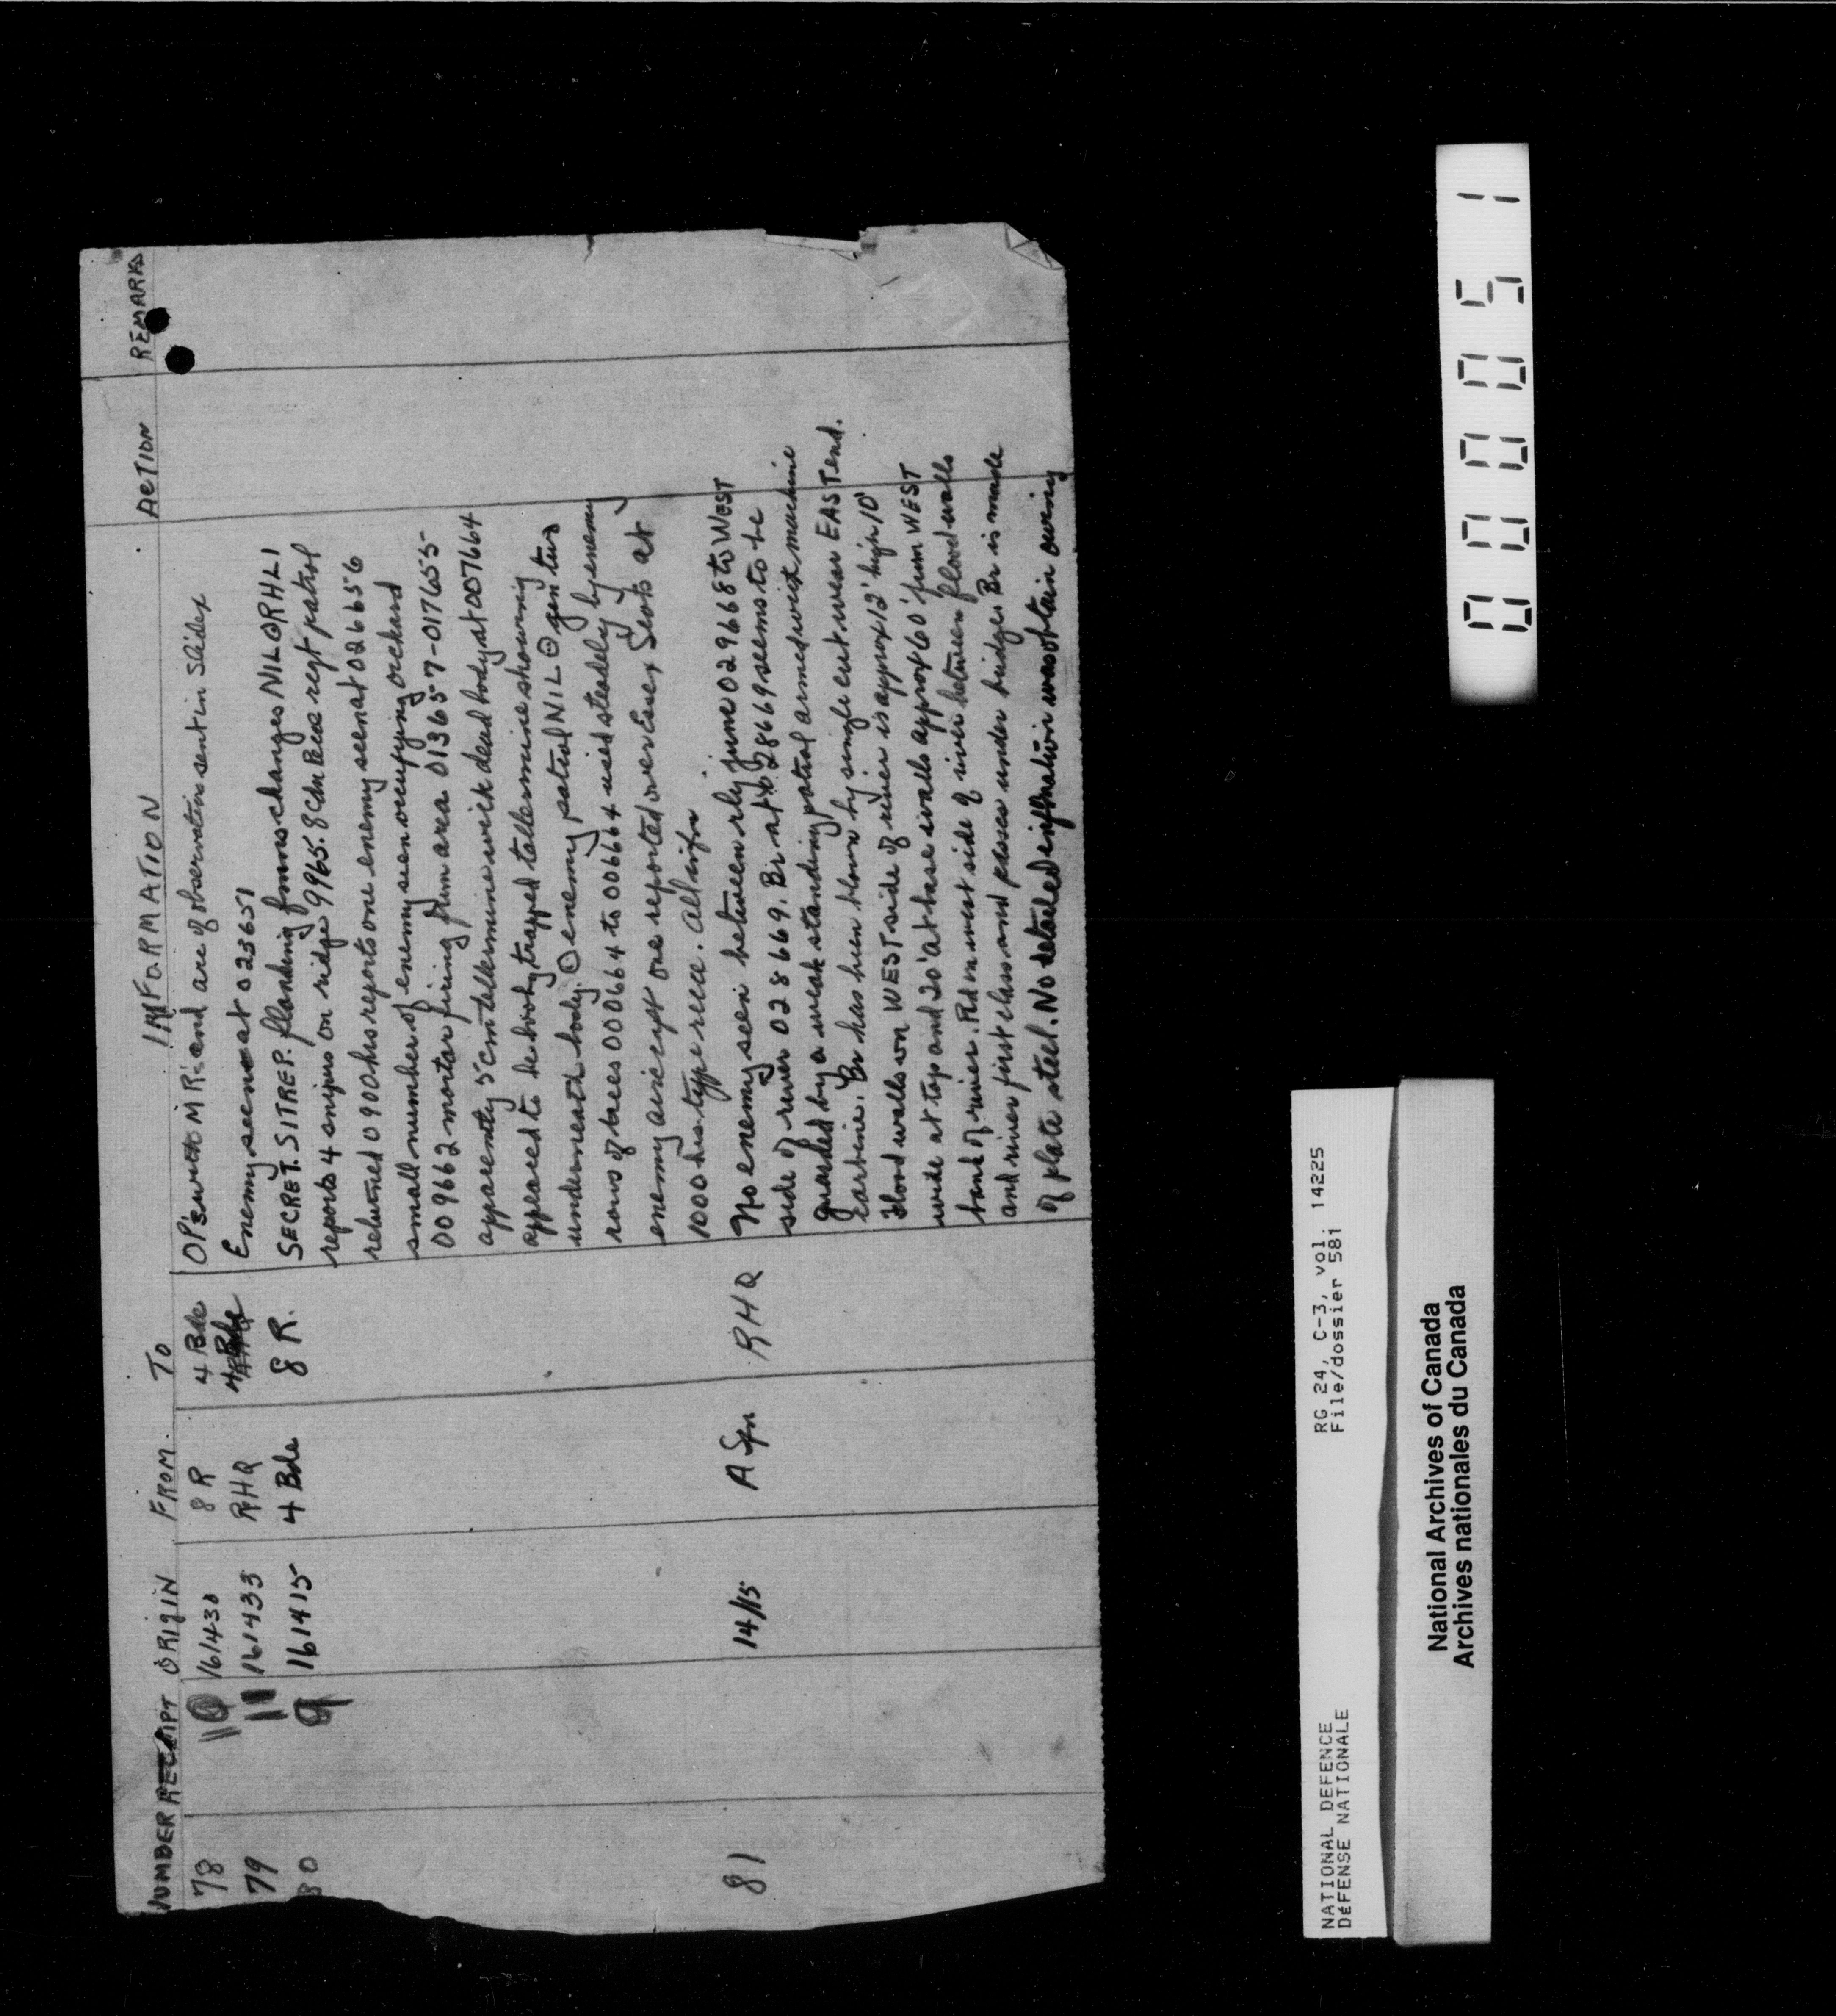 NUMBER RECEIPT ORIGIN FROM TO INFORMATION ACTION REMARKS
78 10 161430 8 R 4 Bde OP's with MR's and arc of observation sent in Slidex
79 11 161433 RHQ 4 Bde Enemy seen at 023651
80 9 161415 4 Bde 8 R. SECRET. SITREP. flanking fmns changes NIL RHLI
reports 4 snipers on ridge 9965. 8 Cdn Recce regt patrol
returned 0900 hrs reports one enemy seen at 026656
small number of enemy seen occupying orchard
009662 mortar firing from area 013657-017655
apparently 5 cm tellermine with dead body at 007664
appeared to be booby trapped tellermine showing
underneath body. enemy patrol NIL gen two
rows of trees 000664 to 006664 used steadely by enemy
enemy aircraft one reported over Essex Scots at
1000 hrs type recce. All infm
81 14/15 A Sqn RHQ No enemy seen between rly junc 029668 to WEST
side of river 028669. Br at 028669 seems to be
guarded by a weak standing patrol armed with machine
carbine. Br has been blown by single cut near EAST end.
Flood walls on WEST side of river is approx 12' high 10'
wide at top and 20' at base walls approx 60' from WEST
bank of river. Rd on west side of river between flood walls
and river first class and passes under bridge. Br is made
of plate steel. No detailed information was obtain owing
00005 1
NATIONAL DEFENCE
DÉFENSE NATIONALE
RG 24, C-3, vol. 14225
File/dossier 581
National Archives of Canada
Archives nationales du Canada